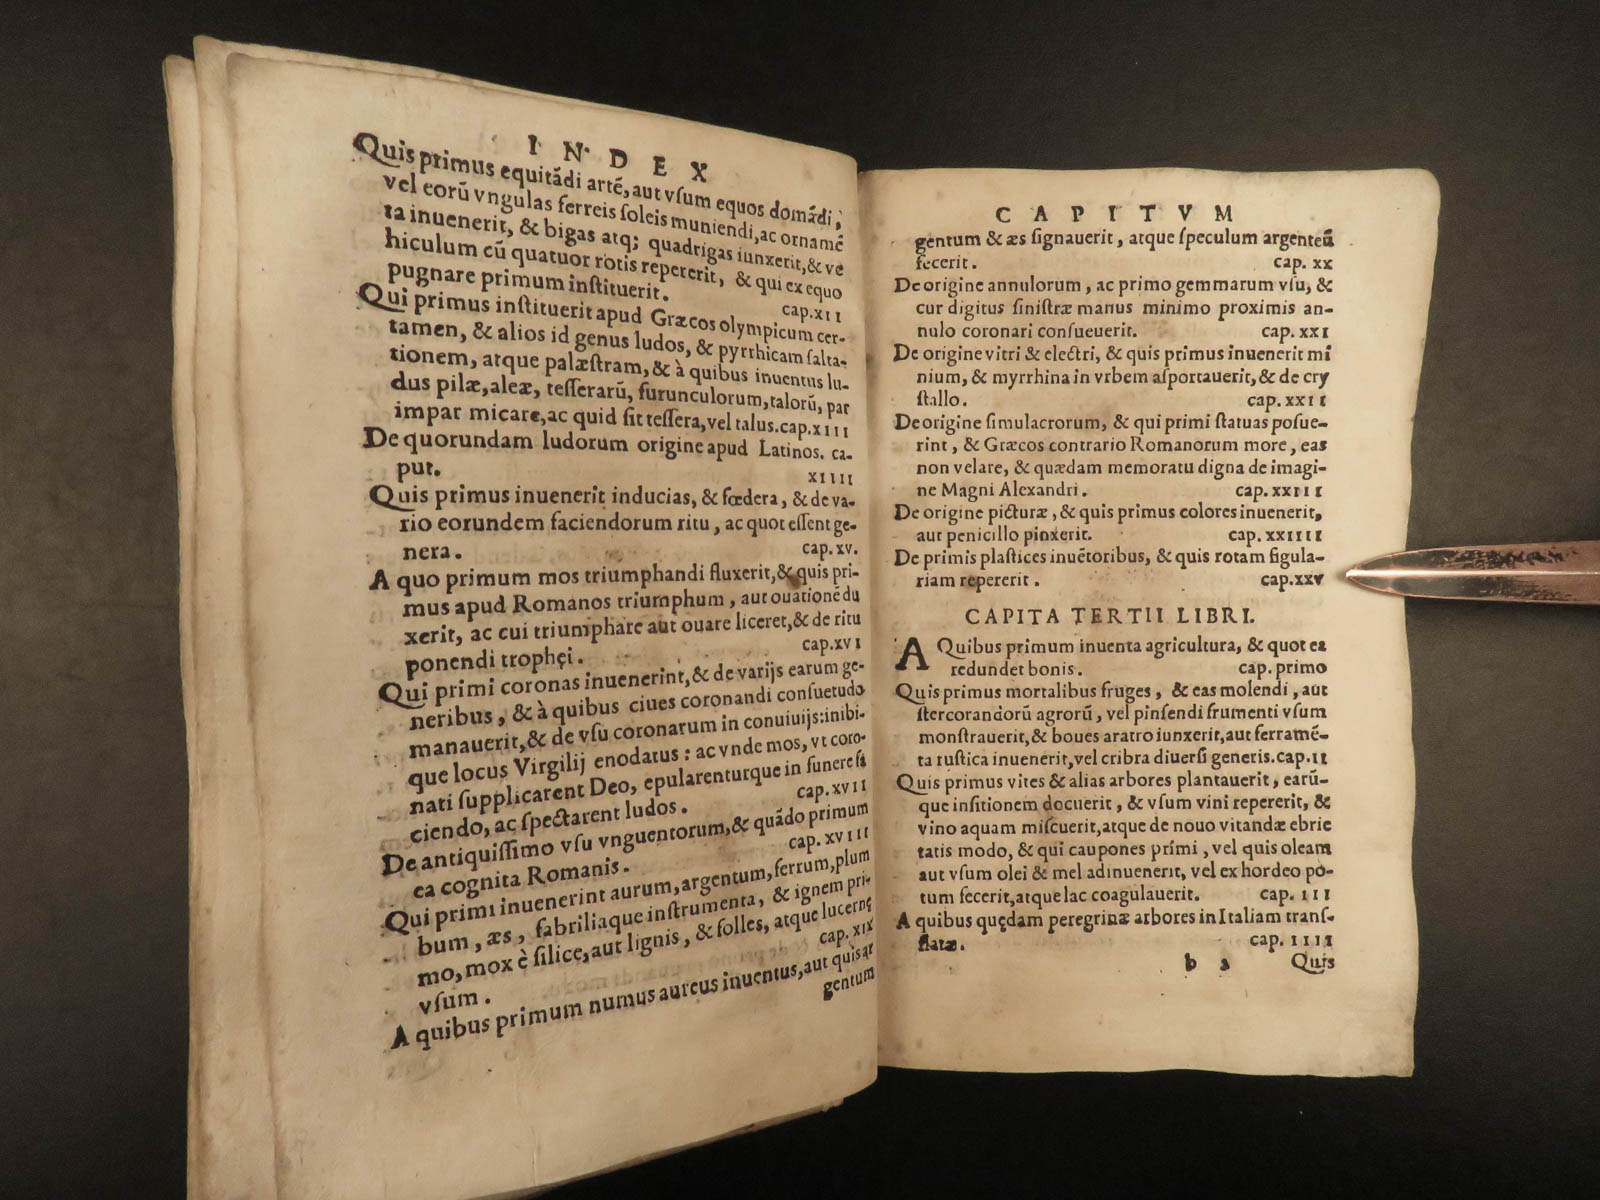 INDEX
Quis primus equitãdi artẽ, aut vſum equos domãdi,
vel eorũ vngulas ferreis ſoleis muniendi, ac ornamẽ
ta inuenerit, & bigas atq; quadrigas iunxerit, & ve
hiculum cũ quatuor rotis repererit, & qui ex equo
pugnare primum inſtituerit. cap. XII
Qui primus inſtituerit apud Græcos olympicum cer-
tamen, & alios id genus ludos, & pyrrhicam ſalta-
tionem, atque palæſtram, & à quibus inuentus lu-
dus pilæ, aleæ, teſſerarũ, furunculorum, talorũ, par
impar micare, ac quid ſit teſſera, vel talus. cap. XIII
De quorundam ludorum origine apud Latinos. ca-
put. XIIII
Quis primus inuenerit inducias, & fœdera, & de va-
rio eorundem faciendorum ritu, ac quot eſſent ge-
nera. cap. XV.
A quo primum mos triumphandi fluxerit, & quis pri-
mus apud Romanos triumphum, aut ouationẽ du
xerit, ac cui triumphare aut ouare liceret, & de ritu
ponendi trophęi. cap. XVI
Qui primi coronas inuenerint, & de varijs earum ge-
neribus, & à quibus ciues coronandi conſuetudo
manauerit, & de vſu coronarum in conuiuijs: inibi-
que locus Virgilij enodatus: ac vnde mos, vt coro-
nati ſupplicarent Deo, epularenturque in funere fa
ciendo, ac ſpectarent ludos. cap. XVII
De antiquiſſimo vſu vnguentorum, & quãdo primum
ea cognita Romanis. cap. XVIII
Qui primi inuenerint aurum, argentum, ferrum, plum
bum, æs, fabriliaque inſtrumenta, & ignem pri-
mo, mox è ſilice, aut lignis, & folles, atque lucernę
vſum. cap. XIX
A quibus primum numus aureus inuentus, aut quis ar
gentum
CAPITVM
gentum & æs ſignauerit, atque ſpeculum argenteũ
fecerit. cap. XX
De origine annulorum, ac primo gemmarum vſu, &
cur digitus ſiniſtræ manus minimo proximis an-
nulo coronari conſueuerit. cap. XXI
De origine vitri & electri, & quis primus inuenerit mi
nium, & myrrhina in vrbem aſportauerit, & de cry
ſtallo. cap. XXII
De origine ſimulacrorum, & qui primi ſtatuas poſue-
rint, & Græcos contrario Romanorum more, eas
non velare, & quædam memoratu digna de imagi-
ne Magni Alexandri. cap. XXIII
De origine picturæ, & quis primus colores inuenerit,
aut penicillo pinxerit. cap. XXIIII
De primis plaſtices inuẽtoribus, & quis rotam figula-
riam repererit. cap. XXV
CAPITA TERTII LIBRI.
A Quibus primum inuenta agricultura, & quot ea
redundet bonis. cap. primo
Quis primus mortalibus fruges, & eas molendi, aut
ſtercorandorũ agrorũ, vel pinſendi frumenti vſum
monſtrauerit, & boues aratro iunxerit, aut ferramẽ-
ta ruſtica inuenerit, vel cribra diuerſi generis. cap. II
Quis primus vites & alias arbores plantauerit, earũ-
que inſitionem docuerit, & vſum vini repererit, &
vino aquam miſcuerit, atque de nouo vitandæ ebrie
tatis modo, & qui caupones primi, vel quis oleam
aut vſum olei & mel adinuenerit, vel ex hordeo po-
tum fecerit, atque lac coagulauerit. cap. III
A quibus quędam peregrinæ arbores in Italiam tranſ-
flatæ. cap. IIII
b a Quis